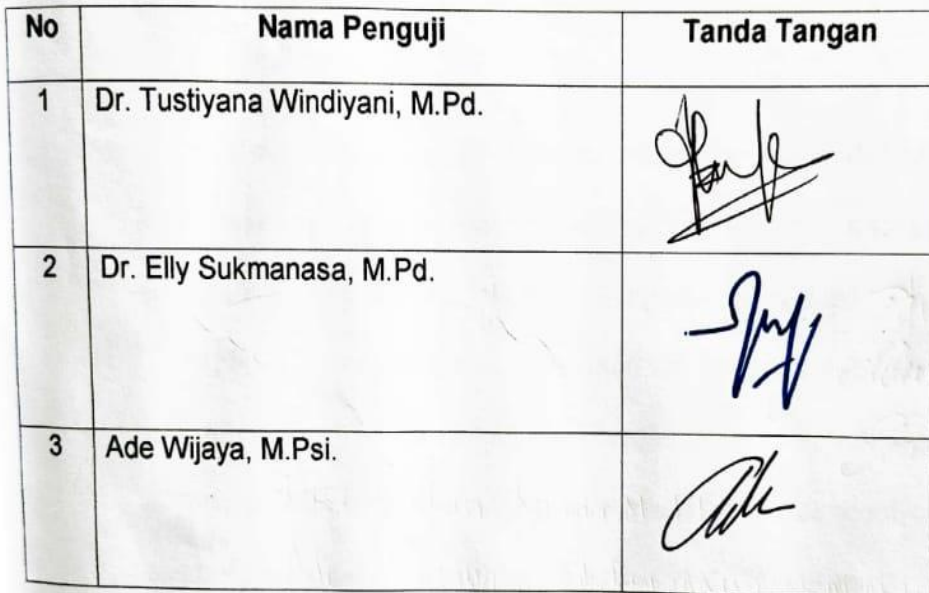 No Nama Penguji Tanda Tangan
1 Dr. Tustiyana Windiyani, M.Pd.
2 Dr. Elly Sukmanasa, M.Pd.
3 Ade Wijaya, M.Psi.